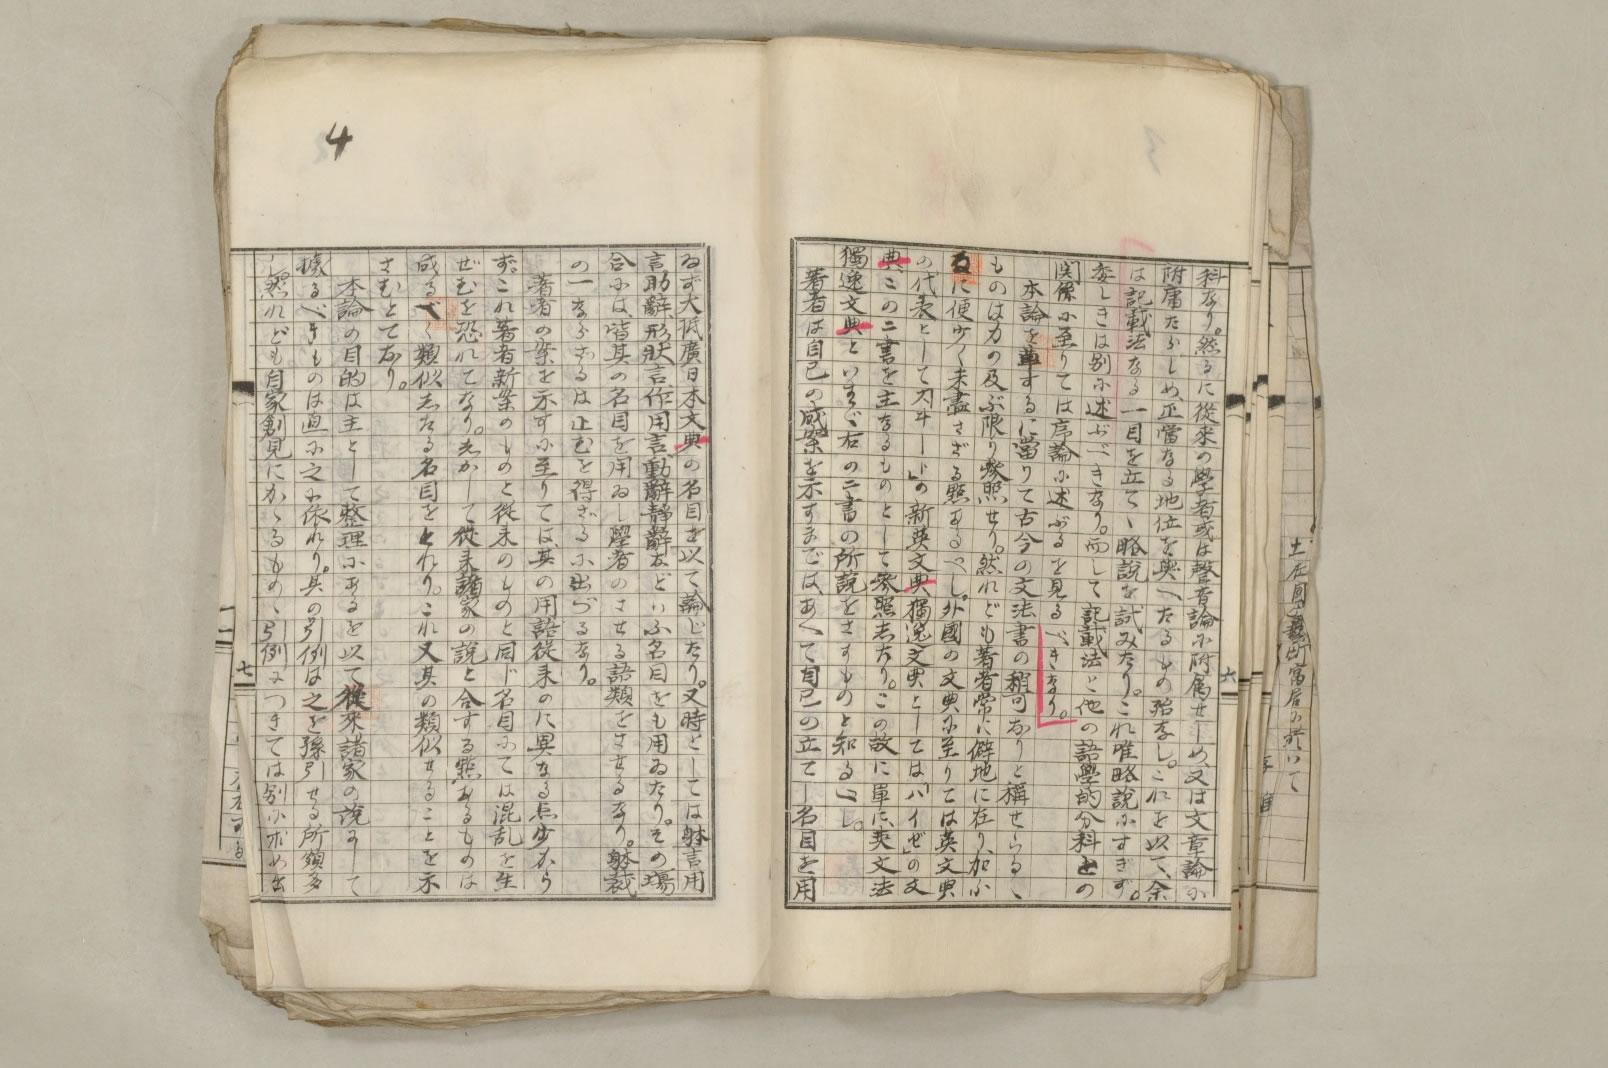 科なり。然るに從来の學者或は聲音論に附属せしめ、又は文章論に
附庸たらしめ正當なる地位を與へたるもの殆なし。これを以て、余
は記載法なる一目を立てゝ略説を試みたり。これ唯略説にすぎず。
委しきは別に述ぶべきなり。而して記載法と他の語學的分科との
関係に至りては序論に述ぶるを見るべきなり。
本論を草するに當りて古今の文法書の稍可なりと稱せらるゝ
ものは力の及ぶ限り參照せり。然れども著者常に僻地に在り、加ふ
るに便少く未盡さざる點あるべし。外國の文典に至りては英文典
の代表としてスヰートの新英文典獨逸文典としては「ハイゼ」の文
典この二書を主なるものとして參照したり。この故に單に、英文法
獨逸文典といはゞ右の二書の所説をさすものと知るべし。
著者は自己の成案を示すまでは、あへて自己の立てし名目を用
ゐず大低廣日本文典の名目を以て論じたり。又時としては躰言用
言助辭形狀言、作用言動辭靜辭などいふ名目をも用ゐたり。その塲
合には、皆其の名目を用ゐし學者のさせる語類をさせるなり。躰裁
の一ならざるは止むを得ざるに出づるなり。
著者の案を示すに至りては、其の用語從来のに異なる点少から
ず。これ著者新案のものと從来のものと同じ名目にては混乱を生
ぜむを恐れてなり。しかして從来諸家の説と合する點あるものは
成るべく類似したる名目をとれり。これ又其の類似せることを示
さむとてなり。
本論の目的は主として整理にあるを以て從来諸家の説にして
據るべきものは直に之に依れり。其の引例は之を孫引せる所頗多
し然れども自家創見にかゝるものゝ引例につきては別に求め出
4
六
七